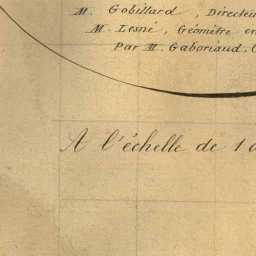 M. Gobillard, Directeu
M. Lesné, Géomètre en
Par M. Gaboriaud.
A l'échelle de 1 à